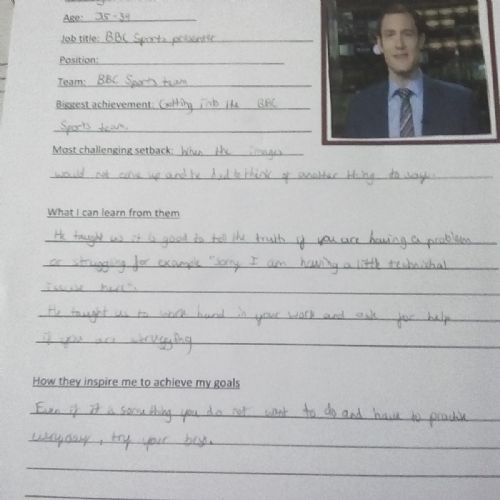 Age: 35-39
Job title: BBC Sports presenter
Position:
Team: BBC Sports team
Biggest achievement: Getting into the BBC
Sports team.
Most challenging setback: When the images
would not come up and he had to think of another thing to say.
What I can learn from them
He taught us it is good to tell the truth if you are having a problem
or struggling for example "sorry I am having a little technichal
issue here".
He taught us to work hard in your work and ask for help
if you are struggling
How they inspire me to achieve my goals
Even if it is something you do not want to do and have to practise
everyday, try your best.